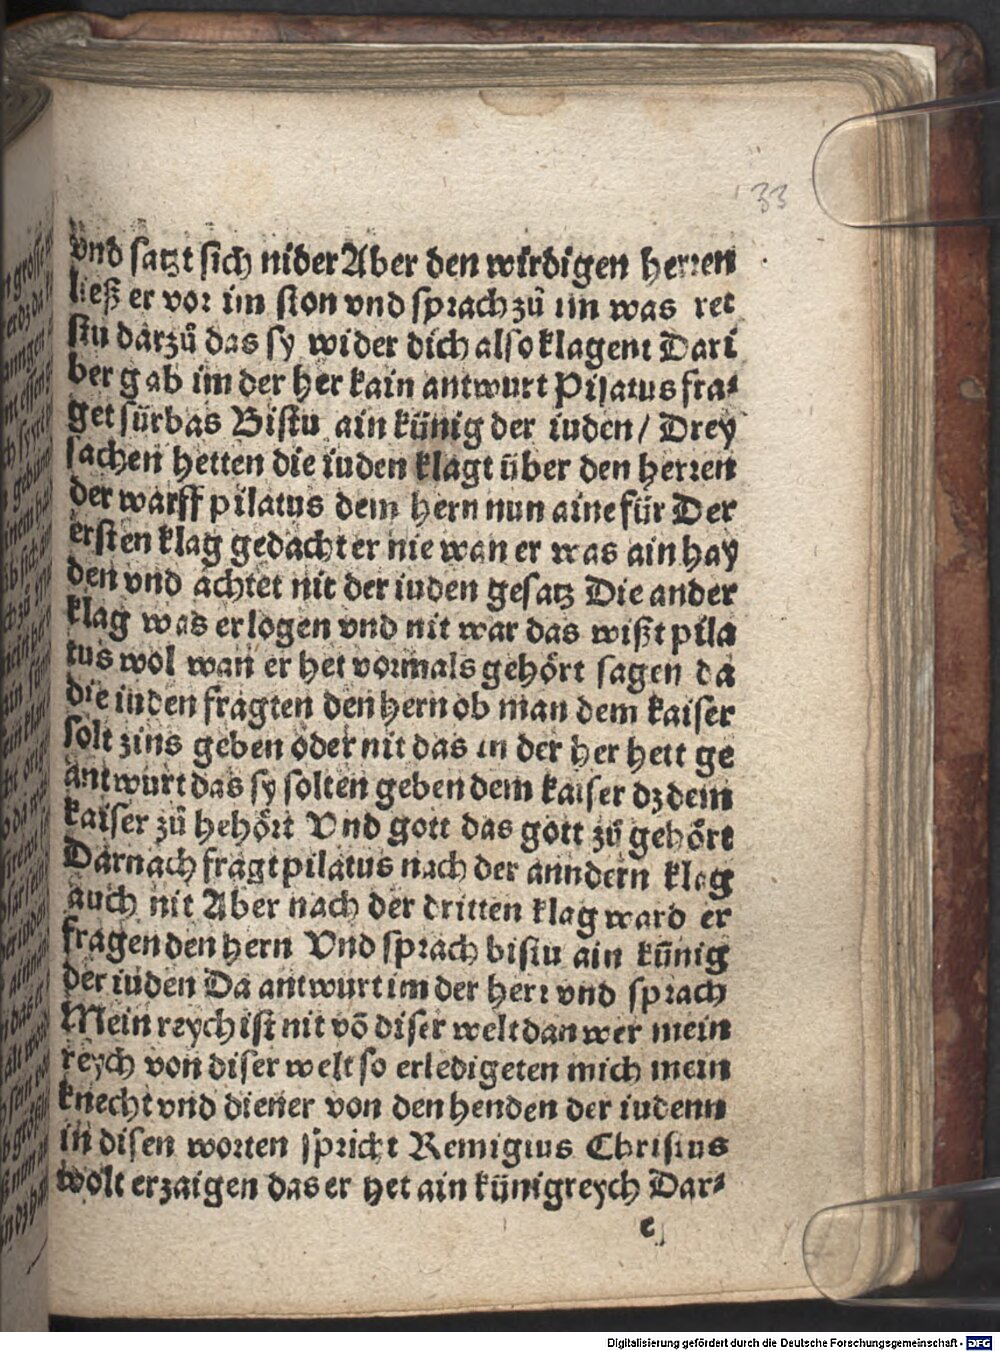 33
vnd satzt sich nider Aber den wirdigen herren
ließ er vor im ston vnd sprach zů im was ret
stu darzů das sy wider dich also klagent Dari
ber gab im der her kain antwurt Pilatus fra-
get fürbas Bistu ain künig der iuden / Drey
sachen hetten die iuden klagt über den herren
der warff pilatus dem hern nun aine für Der
ersten klag gedacht er nie wan er was ain hay
den vnd achtet nit der iuden gesatz Die ander
klag was erlogen vnd nit war das wißt pila
tus wol wan er het vormals gehört sagen da
die iuden fragten den hern ob man dem kaiser
solt zins geben oder nit das in der her hett ge
antwurt das sy solten geben dem kaiser dz dem
kaiser zů hehört Vnd gott das gott zů gehört
Darnach fragt pilatus nach der anndern klag
auch nit Aber nach der dritten klag ward er
fragen den hern Vnd sprach bistu ain künig
der iuden Da antwurt im der herr vnd sprach
Mein reych ist nit võ diser welt dan wer mein
reych von diser welt so erledigeten mich mein
knecht vnd diener von den henden der iudenn
in disen worten spricht Remigius Christus
wolt erzaigen das er het ain künigreych Dar-
e
Digitalisierung gefördert durch die Deutsche Forschungsgemeinschaft - DFG